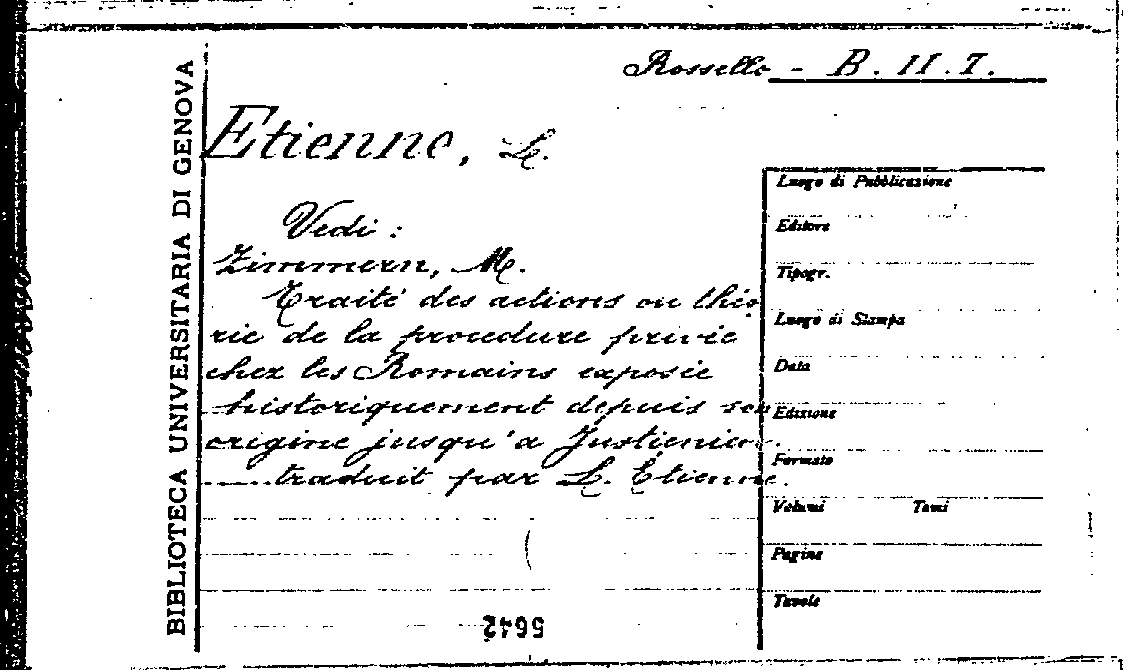 Rossello - B. II. 7.
BIBLIOTECA UNIVERSITARIA DI GENOVA
Etienne, L.
Vedi :
Zimmern, M.
Traité des actions ou théo
rie de la procedure privée
chez les Romains exposée
historiquement depuis son
origine jusqu'a Justienien.
traduit par L. Étienne.
Luogo di Pubblicazione
Editore
Tipogr.
Luogo di Stampa
Data
Edizione
Formato
Volumi Tomi
Pagine
Tavole
5642